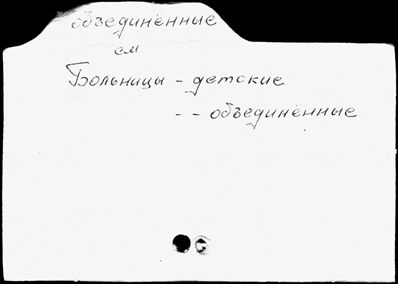 объединённые
см.
Больницы - детские
- - объединённые